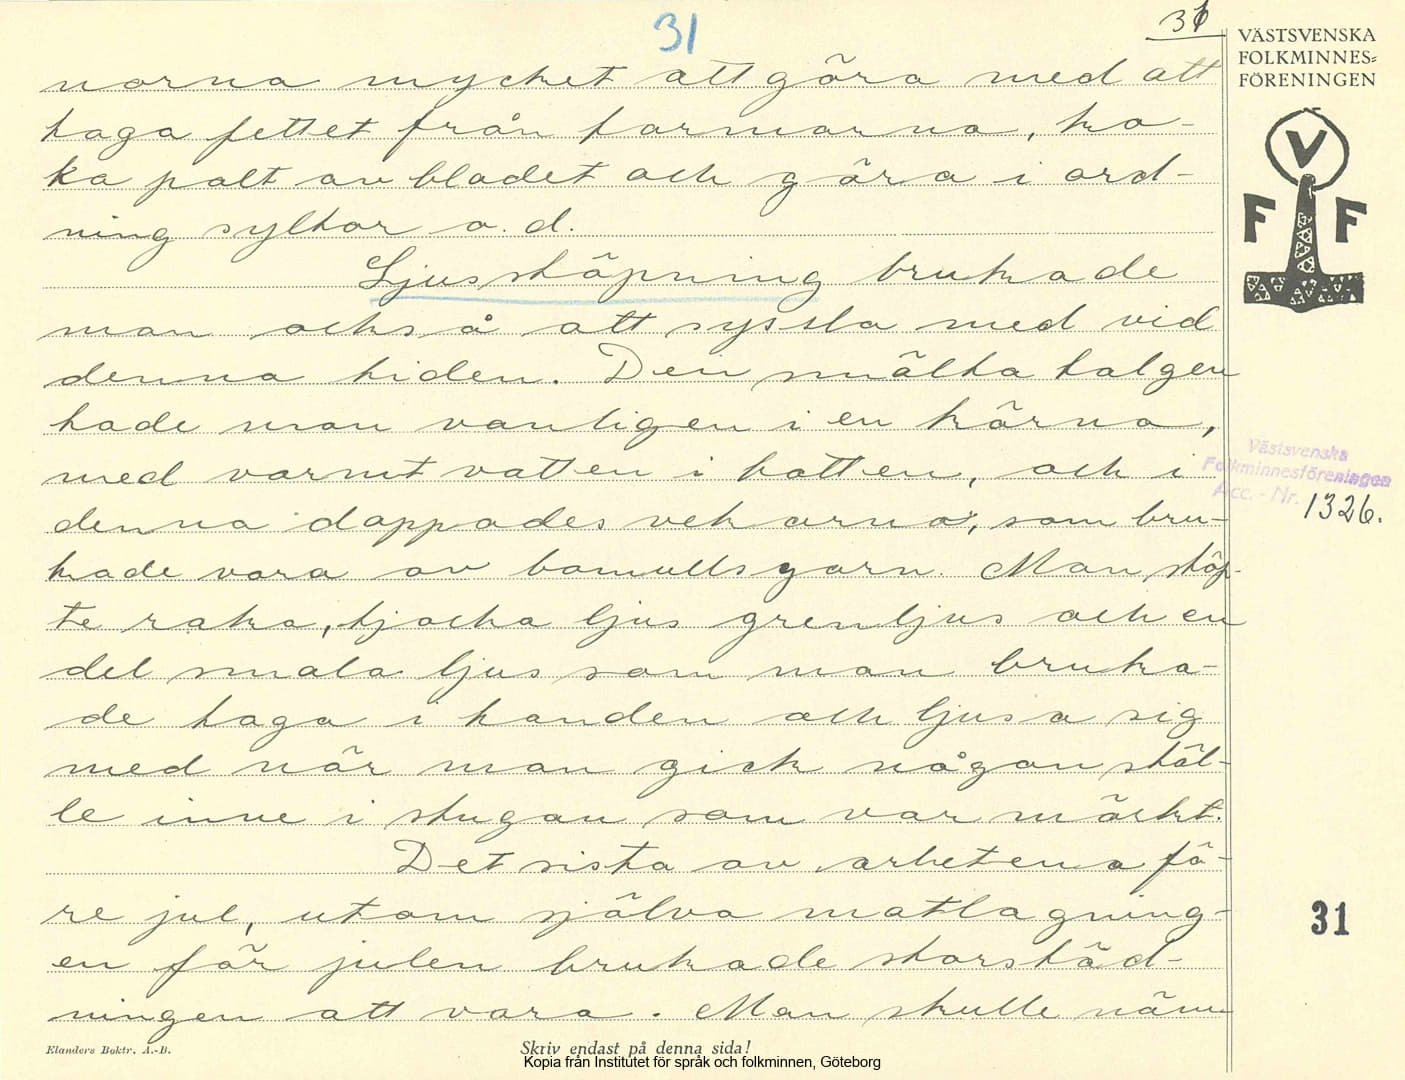 31
31
VÄSTSVENSKA
FOLKMINNES=
FÖRENINGEN
V
F F
norna mycket att göra med att
taga fettet från tarmarna, ko-
ka palt av blodet och göra i ord-
ning syltor o. d.
Ljusstöpning brukade
man också att syssla med vid
denna tiden. Den smälta talgen
hade man vanligen i en kärna,
med varmt vatten i botten, och i
denna doppades vekarna, som bru-
kade vara av bomullsgarn. Man stöp-
te raka, tjocka ljus grenljus och en
del smala ljus som man bruka-
de taga i handen och ljusa sig
med när man gick någon stäl-
le inne i stugan som var mörkt.
Det sista av arbetena fö-
re jul, utom själva matlagning-
en för julen brukade storstäd-
ningen att vara. Man skulle näm
Västsvenska
Folkminnesföreningen
Acc. - Nr. 1326.
31
Elanders Boktr. A.-B.
Skriv endast på denna sida!
Kopia från Institutet för språk och folkminnen, Göteborg